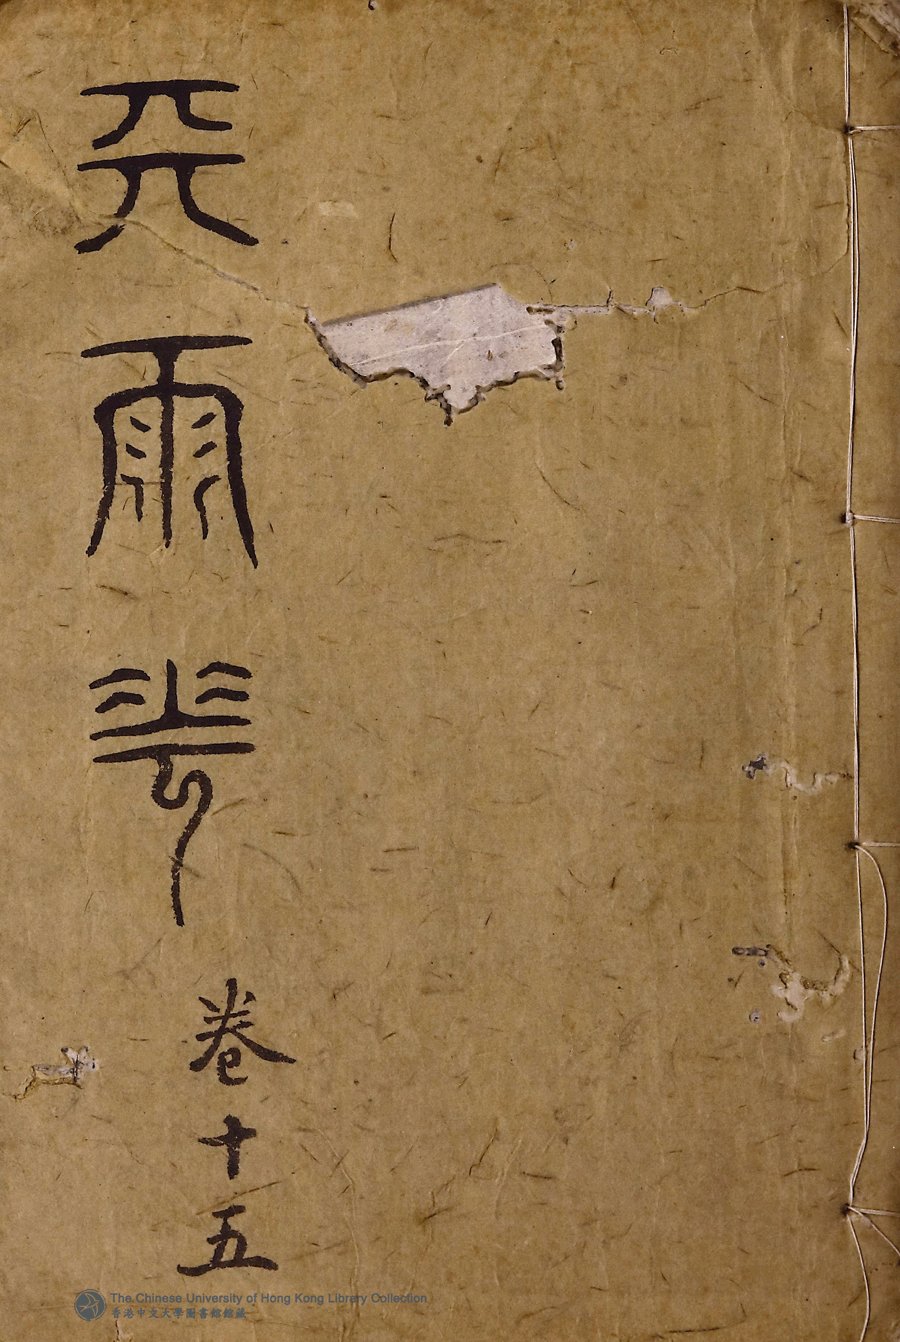 天雨花
卷十五
The Chinese University of Hong Kong Library Collection
香港中文大學圖書館館藏